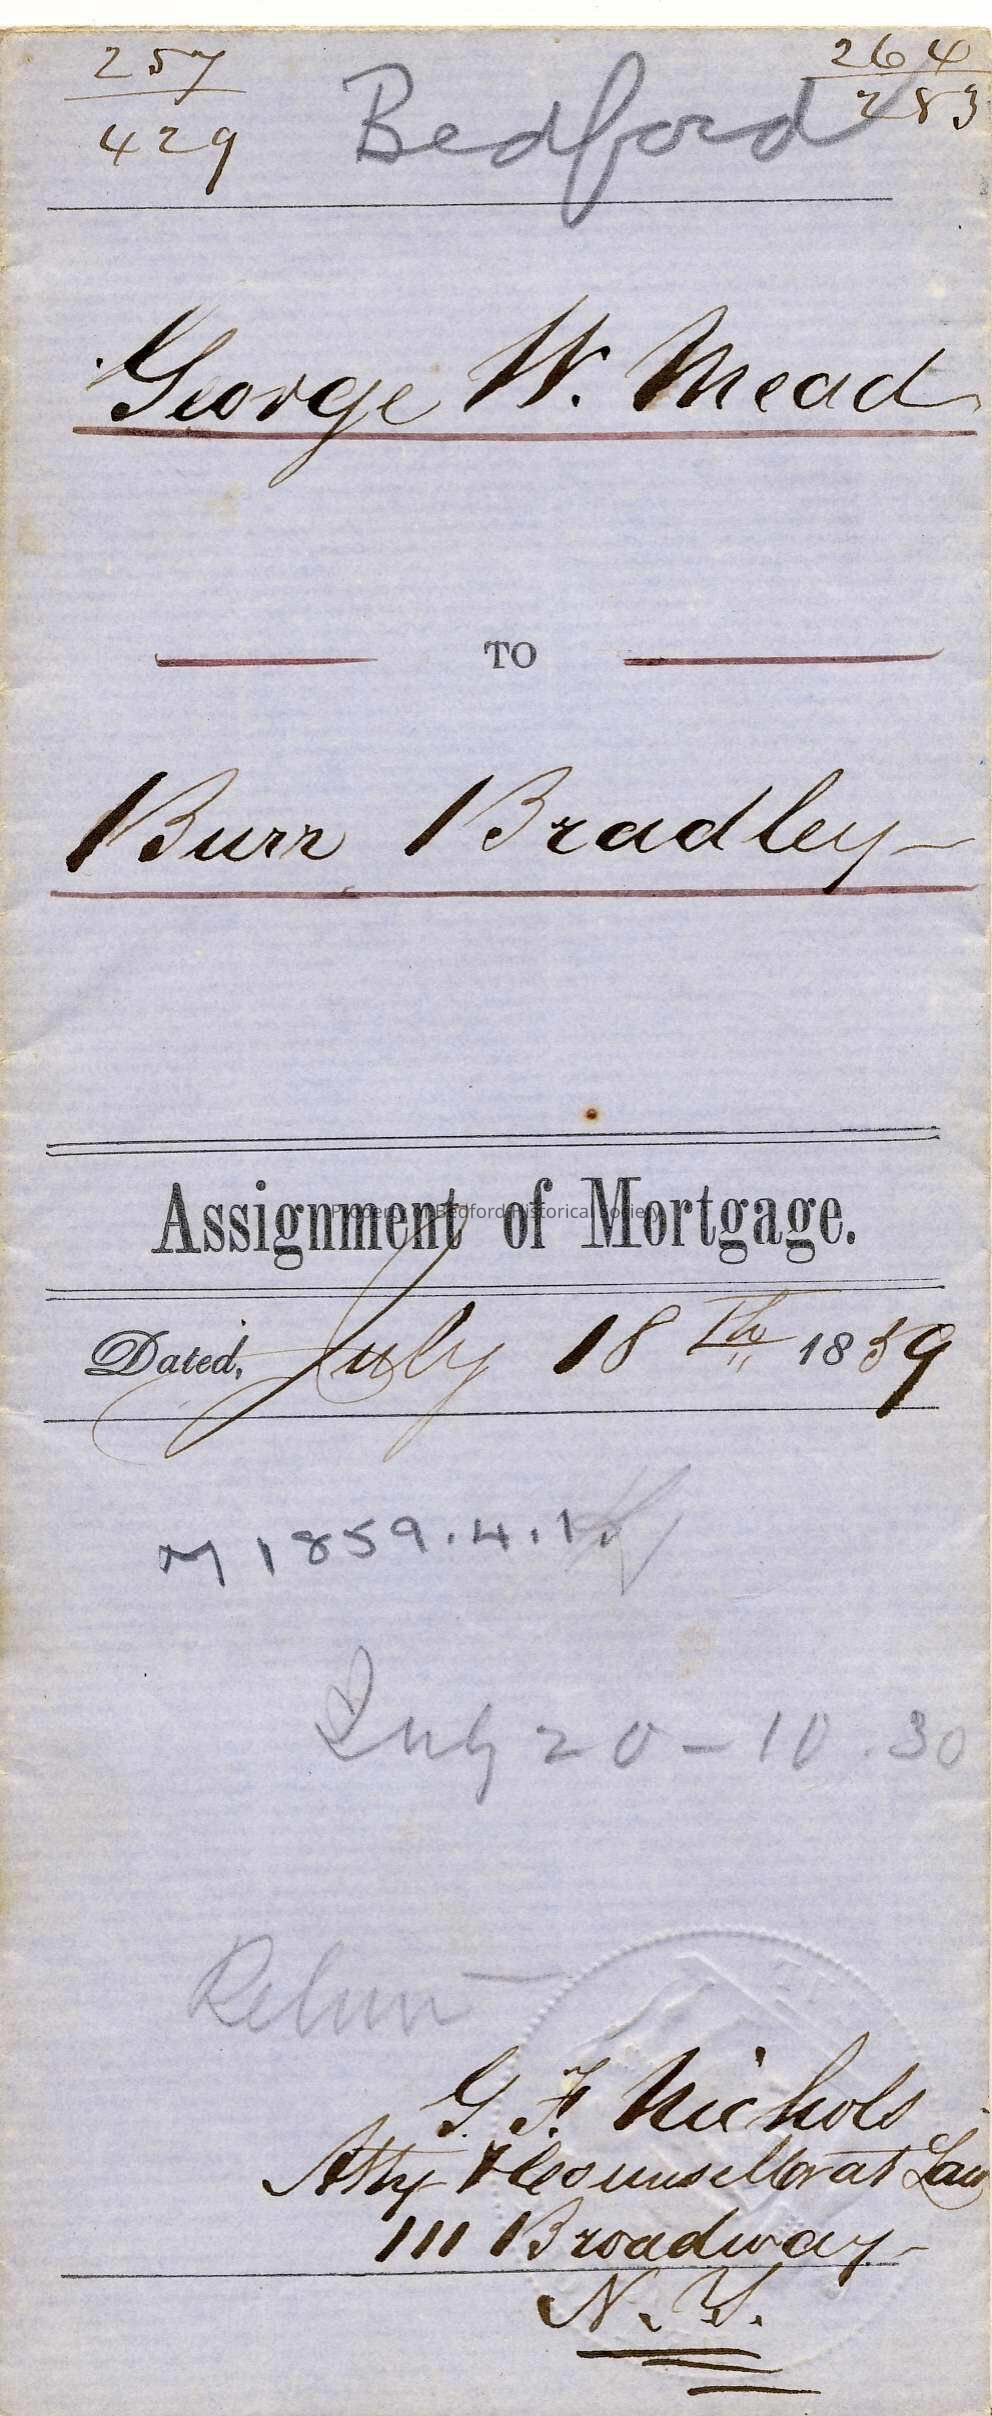 257
429
Bedford
264
283
George W. Mead
TO
Burr Bradley
Assignment of Mortgage.
Property of Bedford Historical Society
Dated, July 18th 1859
M 1859.4.1
July 20 - 10.30
Return
G. F. Nichols
Atty & Counsellor at Law
111 Broadway
N. Y.